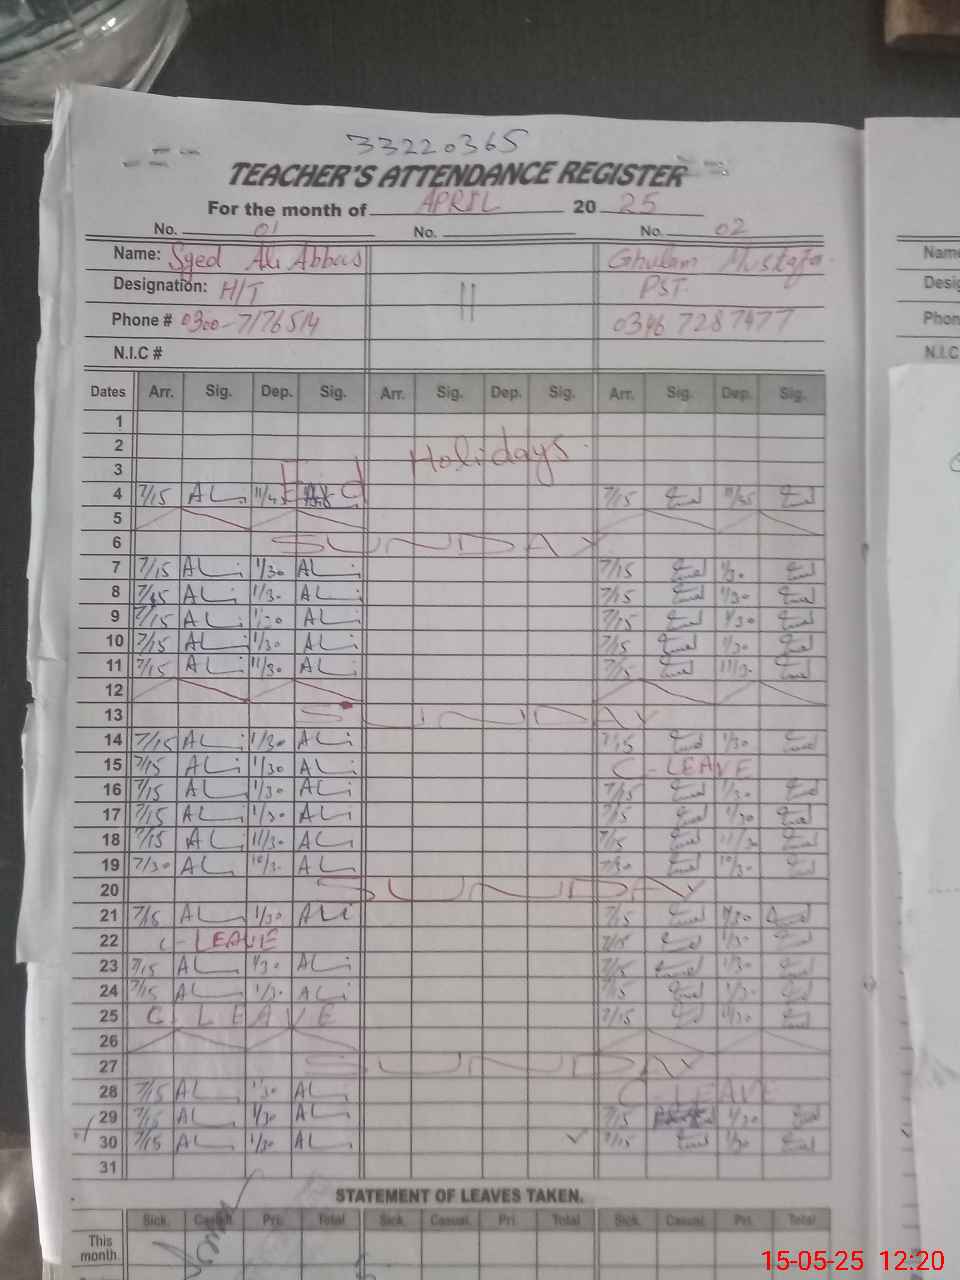 33220365
TEACHER'S ATTENDANCE REGISTER
For the month of APRIL 20 25
No. 01 No. No. 02
Name: Syed Ali Abbas Ghulam Mustafa
Designation: H/T PST
Phone # 0300-7176514 0346 7287477
N.I.C #
Dates Arr. Sig. Dep. Sig. Arr. Sig. Dep. Sig. Arr. Sig. Dep. Sig.
1
2 Holidays
3 Eid
4 7/15 ALi 11/45 7/15 11/45
5
6 SUNDAY
7 7/15 ALi 1/30 ALi 7/15 1/30
8 7/15 ALi 1/30 ALi 7/15 1/30
9 7/15 ALi 1/30 ALi 7/15 1/30
10 7/15 ALi 1/30 ALi 7/15 1/30
11 7/15 ALi 11/30 ALi 7/15 11/30
12
13 SUNDAY
14 7/15 ALi 1/30 ALi 7/15 1/30
15 7/15 ALi 1/30 ALi C-LEAVE
16 7/15 ALi 1/30 ALi 7/15 1/30
17 7/15 ALi 1/30 ALi 7/15 1/30
18 7/15 ALi 11/30 ALi 7/15 11/30
19 7/30 ALi 10/30 ALi 7/30 10/30
20 SUNDAY
21 7/15 ALi 1/30 ALi 7/15 1/30
22 C-LEAVE 7/15 1/30
23 7/15 ALi 1/30 ALi 7/15 1/30
24 7/15 ALi 1/30 ALi 7/15 1/30
25 C. LEAVE 7/15 11/30
26
27 SUNDAY
28 7/15 ALi 1/30 ALi C-LEAVE
29 7/15 ALi 1/30 ALi 7/15 1/30
30 7/15 ALi 1/30 ALi 7/15 1/30
31
STATEMENT OF LEAVES TAKEN.
Sick. Casual. Pri. Total Sick. Casual. Pri. Total Sick. Casual. Pri. Total
This
month
Name
Desig
Phon
N.I.C
15-05-25 12:20